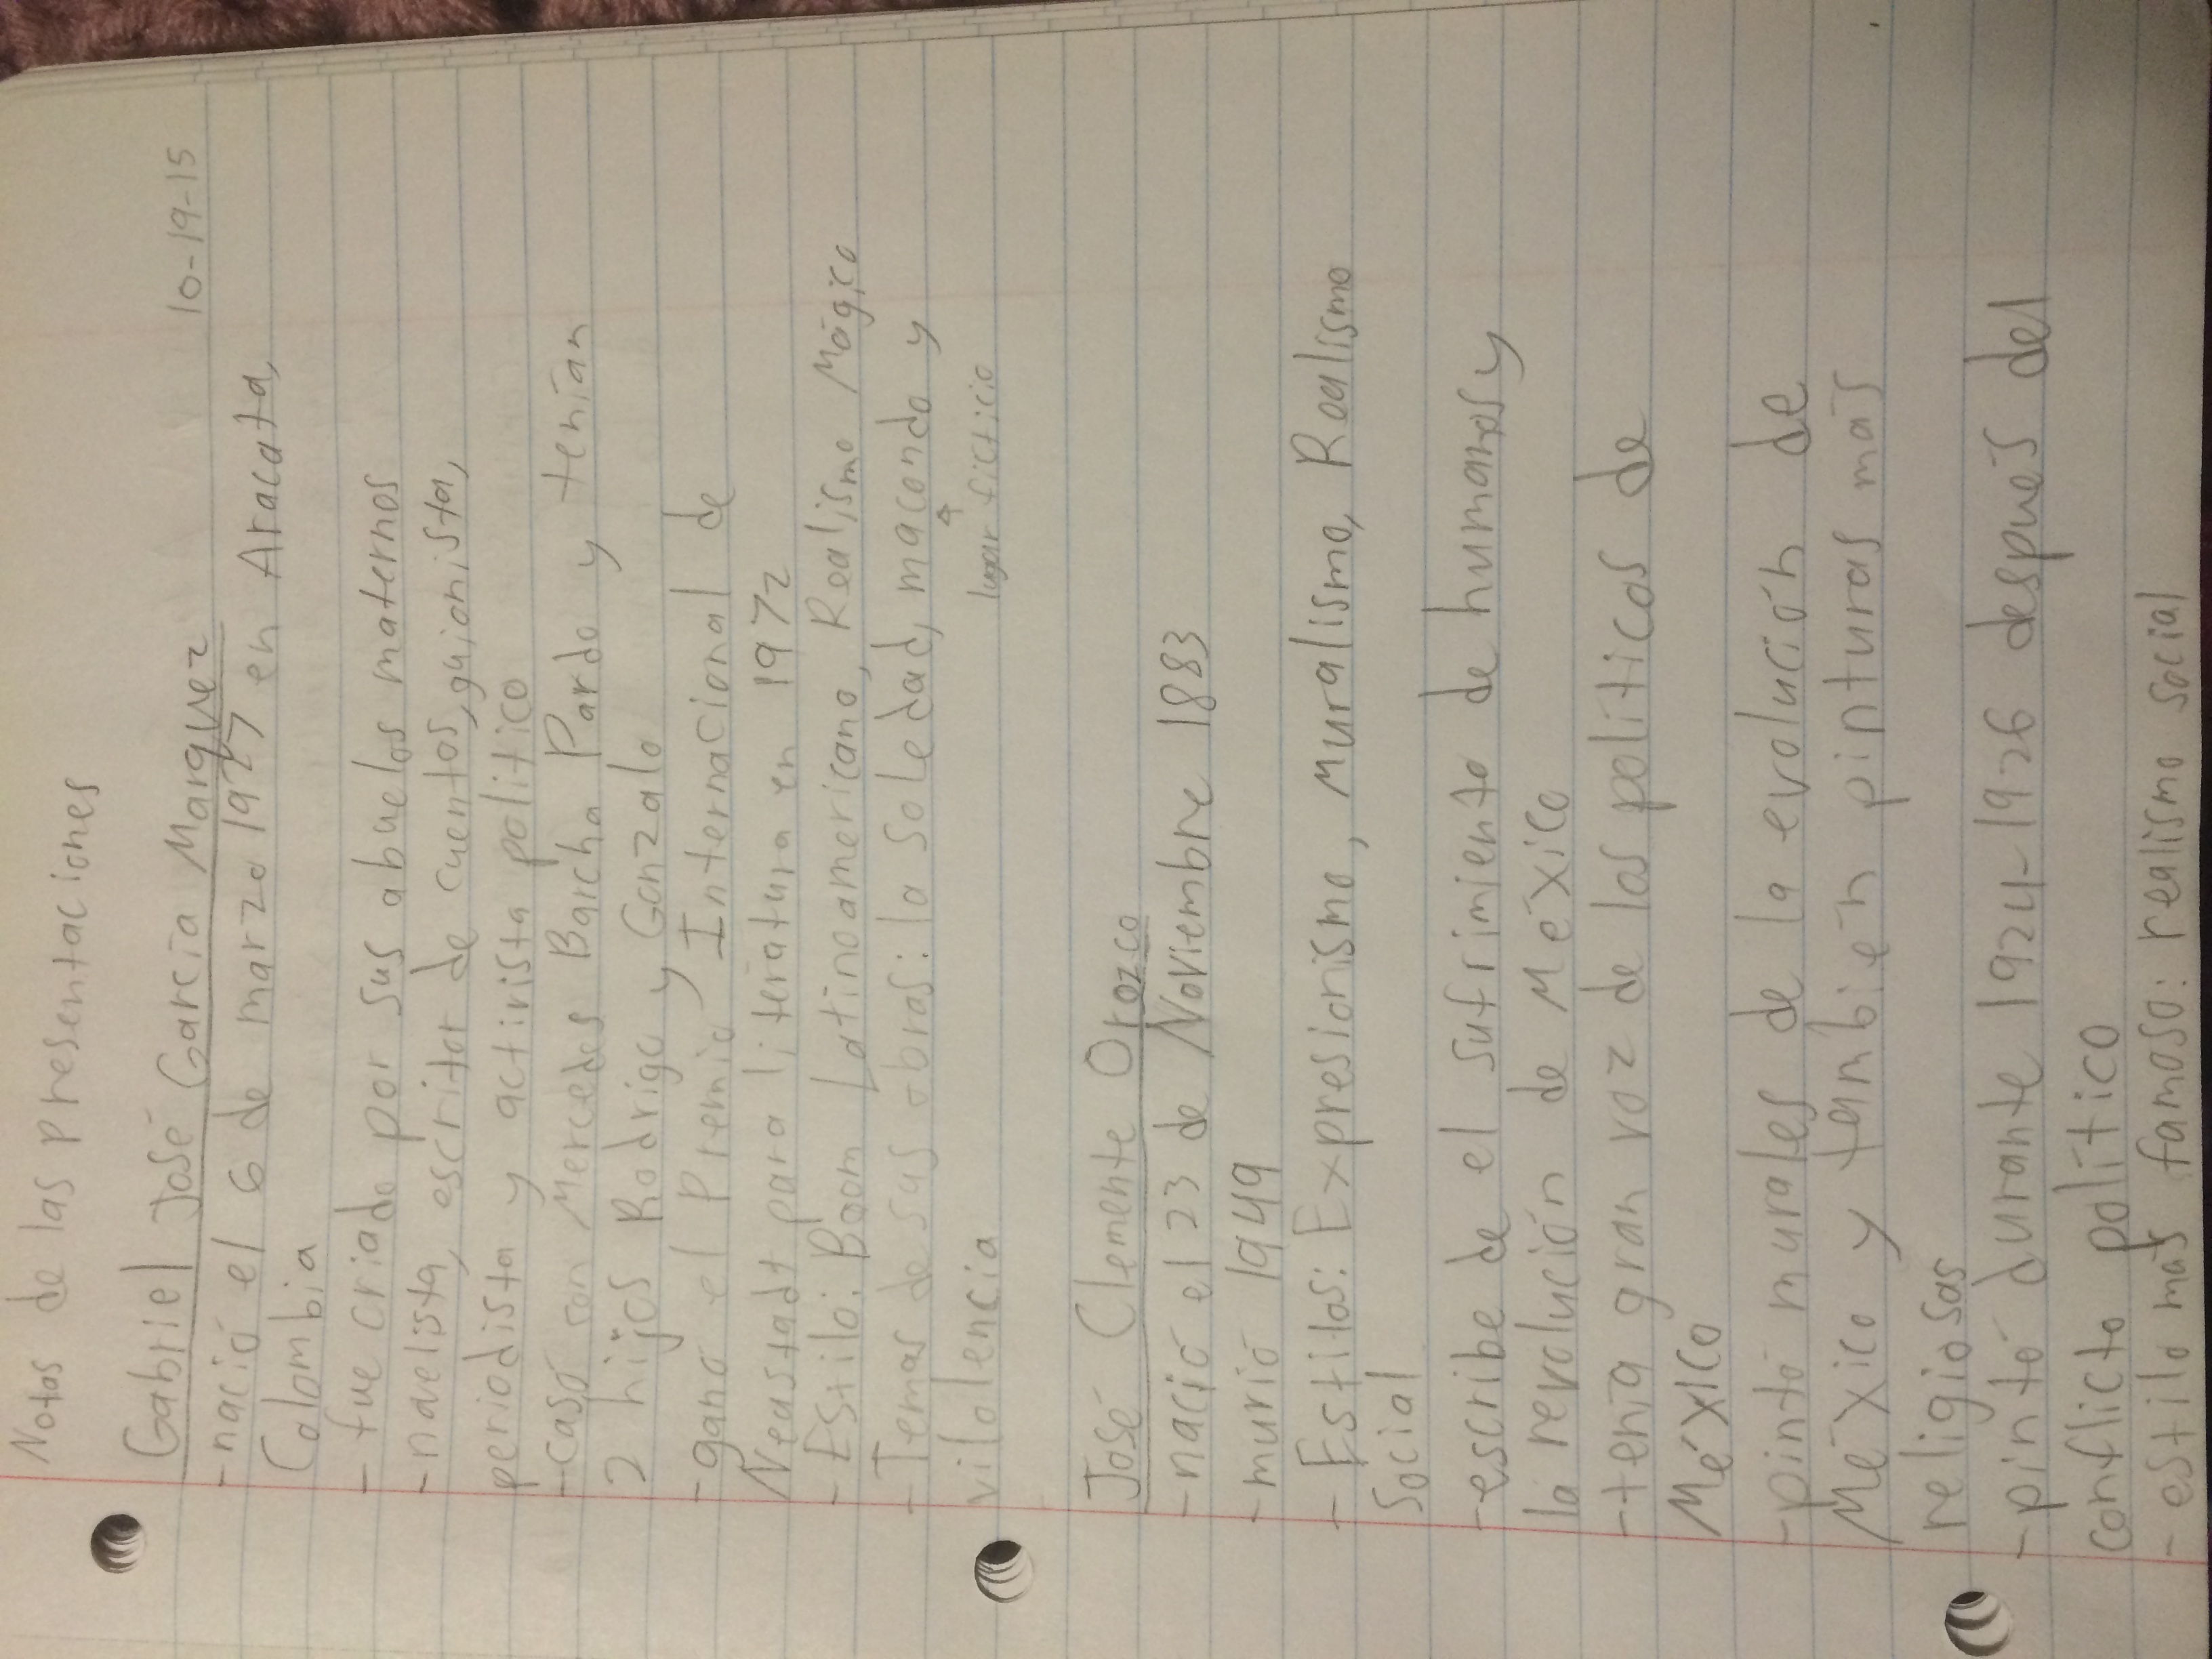 Notas de las presentaciones
10-19-15
Gabriel José García Marquez
- nació el 6 de marzo 1927 en Aracata,
Colombia
- fue criado por sus abuelos maternos
- novelista, escritor de cuentos, guionista,
periodista y activista politico
- casó con Mercedes Barcha Pardo y tenían
2 hijos Rodrigo y Gonzalo
- ganó el Premio Internacional de
Neustadt para literatura en 1972
- Estilo: Boom Latinoamericano, Realismo Mágico
- Temas de sus obras: la soledad, macondo y
lugar ficticio
vilolencia
José Clemente Orozco
- nació el 23 de Noviembre 1883
- murió 1949
- Estilos: Expresionismo, Muralismo, Realismo
Social
- escribe de el sufrimiento de humanos y
la revolución de México
- tenía gran voz de los políticos de
México
- pintó murales de la evolución de
México y también pinturas más
religiosas
- pintó durante 1924-1926 después del
conflicto político
- estilo más famoso: realismo social